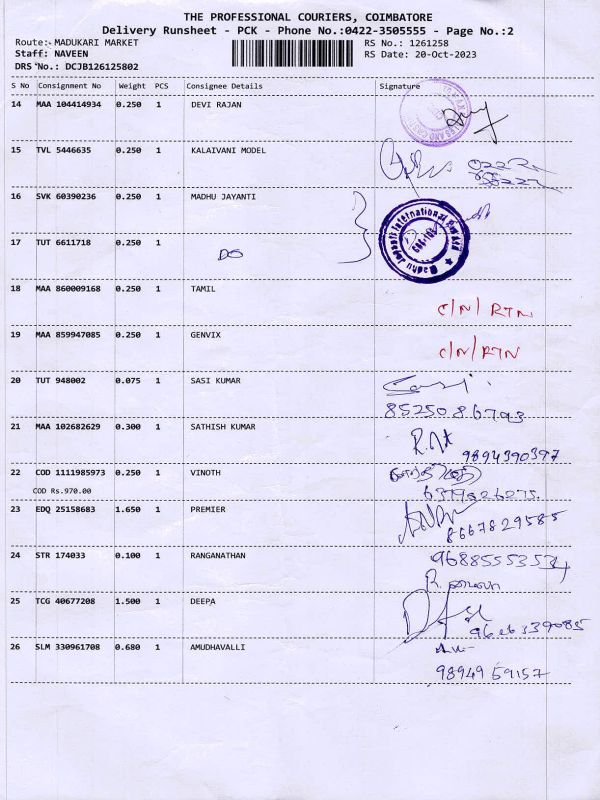 THE PROFESSIONAL COURIERS, COIMBATORE
Delivery Runsheet - PCK - Phone No.:0422-3505555 - Page No.:2
Route:- MADUKARI MARKET RS No.: 1261258
Staff: NAVEEN RS Date: 20-Oct-2023
DRS No.: DCJB126125802
S No Consignment No Weight PCS Consignee Details Signature
14 MAA 104414934 0.250 1 DEVI RAJAN
15 TVL 5446635 0.250 1 KALAIVANI MODEL
16 SVK 60390236 0.250 1 MADHU JAYANTI
Madhu Jayanti International
17 TUT 6611718 0.250 1 DO
18 MAA 860009168 0.250 1 TAMIL
C/N/RTN
19 MAA 859947085 0.250 1 GENVIX
C/N/RTN
20 TUT 948002 0.075 1 SASI KUMAR
8525086793
21 MAA 102682629 0.300 1 SATHISH KUMAR
9894390397
22 COD 1111985973 0.250 1 VINOTH
COD Rs.970.00
23 EDQ 25158683 1.650 1 PREMIER
8667829585
24 STR 174033 0.100 1 RANGANATHAN
25 TCG 40677208 1.500 1 DEEPA
26 SLM 330961708 0.680 1 AMUDHAVALLI
9894959157